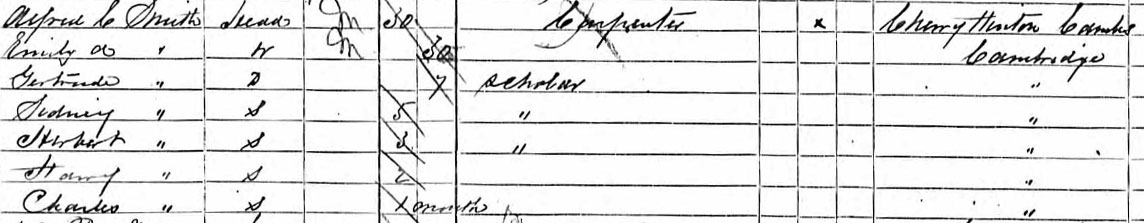 Alfred C Smith Head M 30 Carpenter x Cherry Hinton Cambs
Emily A " W M 30 Cambridge
Gertrude " D 7 Scholar "
Sidney " S 5 " "
Herbert " S 3 " "
Harry " S 2 "
Charles " S 1 month "